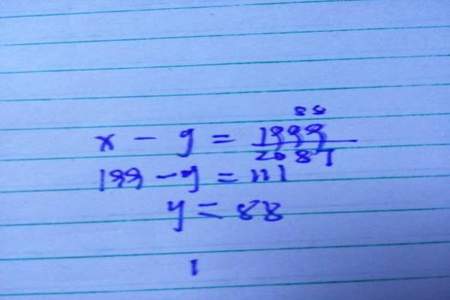 88
x - y = 1999
2087
199 - y = 111
y = 88
1